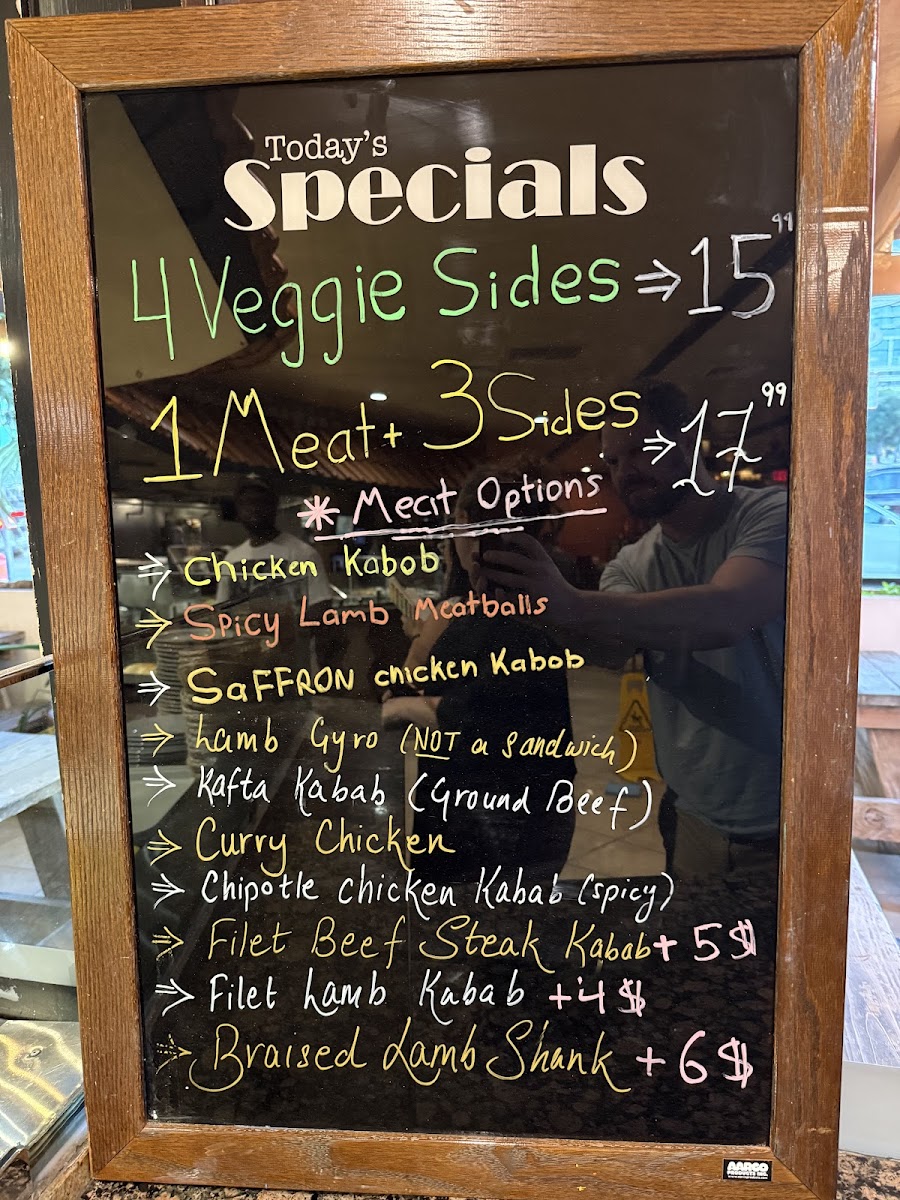 Today's
Specials
4 Veggie Sides ⇒ 15 99
1 Meat + 3 Sides ⇒ 17 99
* Meat Options
⇒ Chicken Kabob
⇒ Spicy Lamb Meatballs
⇒ SaFFRON chicken Kabob
⇒ Lamb Gyro (NOT a sandwich)
⇒ Kafta Kabab (Ground Beef)
⇒ Curry Chicken
⇒ Chipotle chicken Kabab (spicy)
⇒ Filet Beef Steak Kabab + 5$
⇒ Filet Lamb Kabab + 4$
⇒ Braised Lamb Shank + 6$
AARCO
PRODUCTS INC.